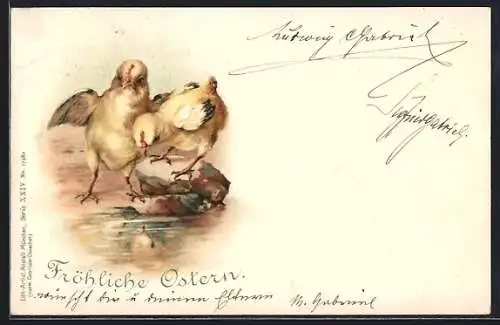 Ludwig Gabriel
Gabriel.
Lith.-Artist. Anstalt München, Serie XXIV No.
(vorm. Gebrüder Obpacher)
Fröhliche Ostern.
wünscht dir u deinen Eltern M. Gabriel